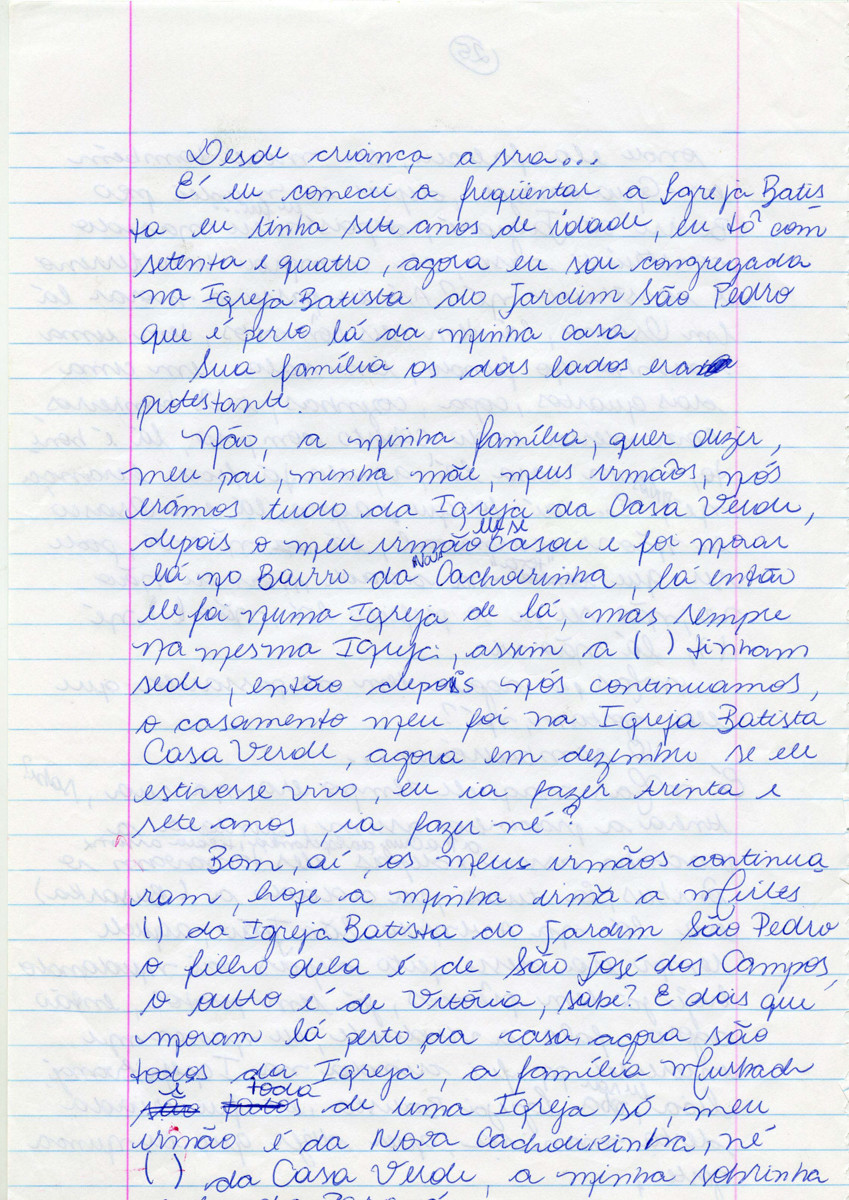 Desde criança a sra...
É eu comecei a freqüentar a Igreja Batis
ta eu tinha sete anos de idade, eu tô com
setenta e quatro, agora eu sou congregada
na Igreja Batista do Jardim São Pedro
que é perto lá da minha casa
Sua família os dos lados era
protestante.
Não, a minha família, quer dizer,
meu pai, minha mãe, meus irmãos, nós
erámos tudo da Igreja da Casa Verde,
depois o meu irmão ele se casou e foi morar
lá no Bairro da Nova Cachoeirinha, lá então
ele foi numa Igreja de lá, mas sempre
na mesma Igreja, assim a ( ) tinham
sede, então depois nós continuamos,
o casamento meu foi na Igreja Batista
Casa Verde, agora em dezembro se ele
estivesse vivo, eu ia fazer trinta e
sete anos, ia fazer né?
Bom, aí, os meus irmãos continua
ram, hoje a minha irmã a
( ) da Igreja Batista do Jardim São Pedro
o filho dela é de São José dos Campos,
o outro é de Vitória, sabe? E dois que
moram lá perto da casa, agora são
todos da Igreja, a família
é toda de uma Igreja só, meu
irmão é da Nova Cachoeirinha, né
( ) da Casa Verde, a minha sobrinha